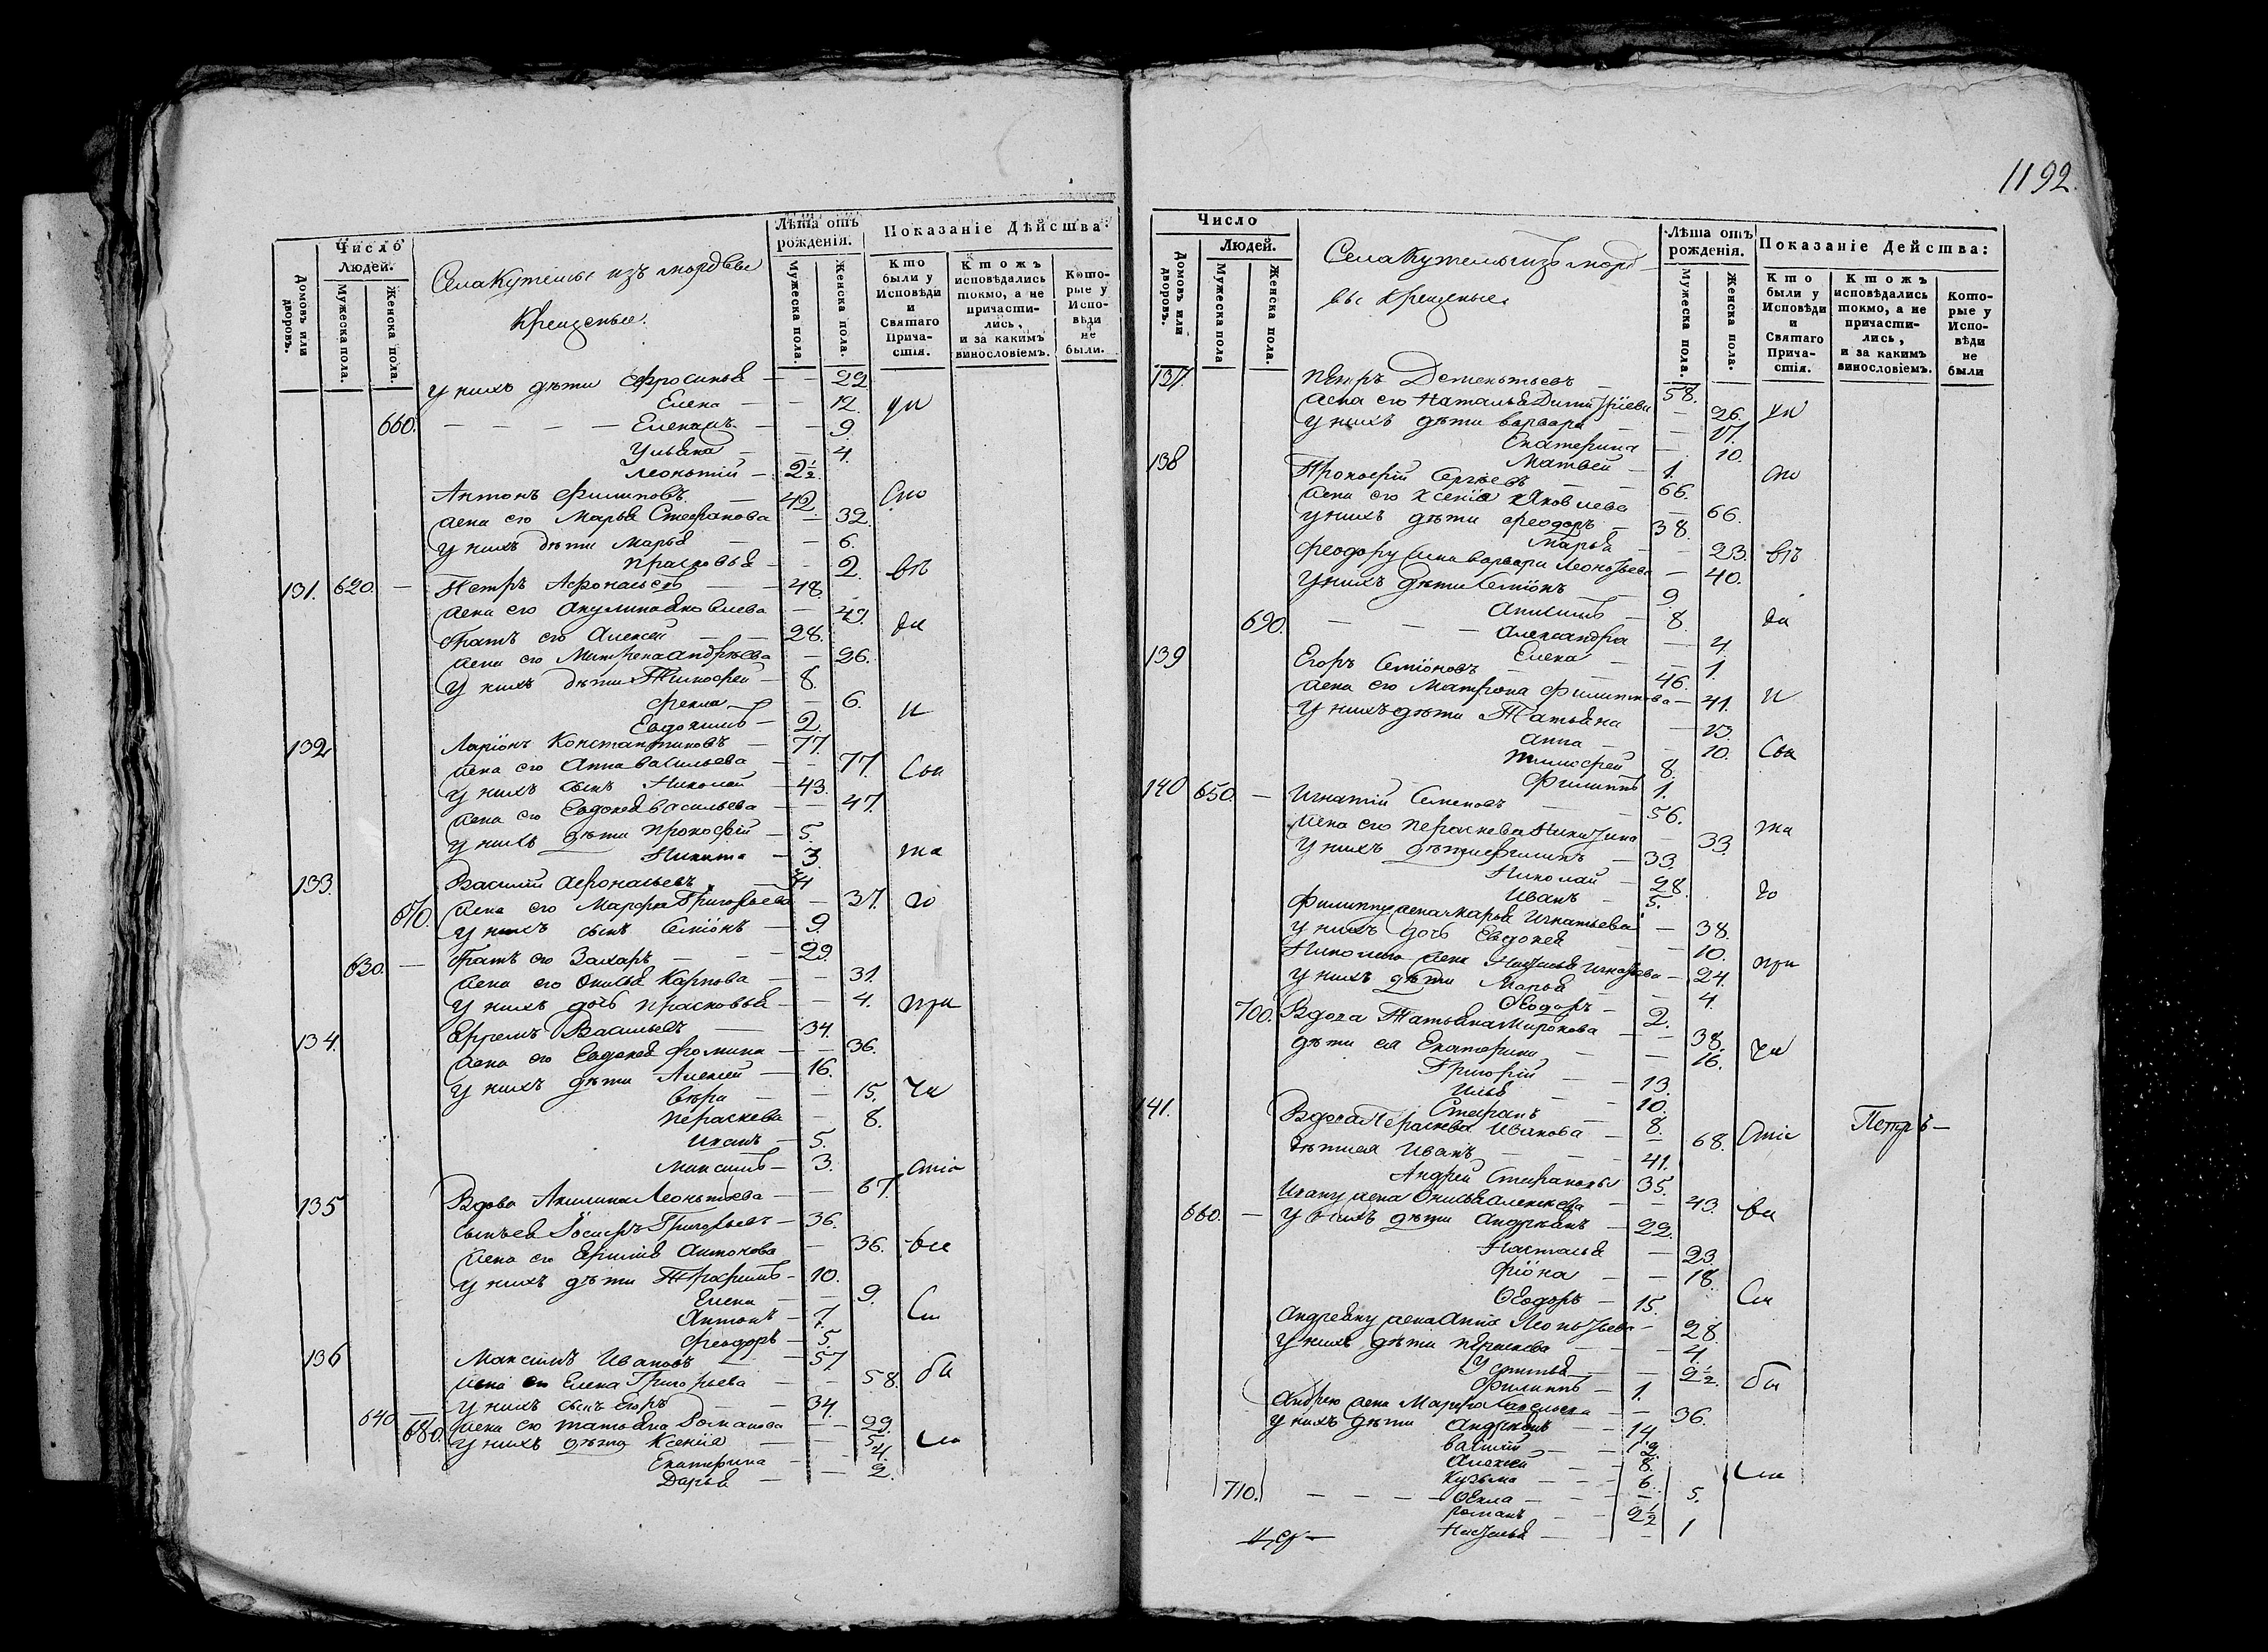 1192.
Число
Людей.
Домовъ или дворовъ.
Мужеска пола.
Женска пола.
Села Кутельы изъ мордвы
Крещеные.
Лѣта отъ рожденія.
Мужеска пола.
Женска пола.
Показаніе Дѣйства:
Кто были у Исповѣди и Святаго Причастія.
Ктожъ исповѣдались токмо, а не причастились, и за какимъ винословіемъ.
Которые у Исповѣди не были.
у нихъ дѣти Ефросинья — — 22
Елена — — 12.
660. — — — — Елена — — 9.
Ульяна — — 4.
Леонтій — 2½
Антонъ Филиповъ — 42.
жена его Марья Стефанова — 32.
у нихъ дѣти Марья — — 6.
Прасковья — — 2.
131. 620. — Петръ Афонасьевъ — 48.
жена его Акулина Яковлева — 49.
братъ его Алексей — — 28.
жена его Матрена Андрѣева — 26.
у нихъ дѣти Тимофей — 8.
Фекла — — 6.
Евдокимъ — 2.
132 Ларіонъ Константиновъ — 77.
жена его Анна Васильева — 77.
у нихъ сынъ Николай — 43.
жена его Евдокея Васильева — — 47.
у нихъ дѣти Прокофій — 5.
Никита — 3.
133. Василій Афонасьевъ —
670. жена его Марфа Григорьева — 37.
у нихъ сынъ Семіонъ — 9.
630. — братъ его Захаръ — — — 29.
жена его Карпова — — 31.
у нихъ дочь Прасковья — — 4.
134. Ефремъ Васильевъ — 34.
жена его Евдокея Фомина — — 36.
у нихъ дѣти Алексей — 16.
Вѣра — — 15.
Пераскева — 8.
Иванъ — 5.
Максимъ — 3.
135 Вдова Акилина Леонтьева — — 67.
сынъ ея Іосифъ Григорьевъ — 36.
жена его Антонова — 36.
у нихъ дѣти Трофимъ — 10.
Елена — — 9.
Антонъ — 7.
Феодоръ — 5.
136 Максимъ Ивановъ — 57
жена его Елена Григорьева — — 58.
у нихъ сынъ Егоръ — — 34.
640 680. жена его Татьяна Романова — 29.
у нихъ дѣти Ксенія — — 5.
Екатерина — — 4.
Дарья — — 2.
Число
Людей.
Домовъ или дворовъ.
Мужеска пола
Женска пола.
Села Кутельы изъ морд-
вы крещеные
Лѣта отъ рожденія.
Мужеска пола.
Женска пола.
Показаніе Дейсшва:
Кто были у Исповѣди и Святаго Причастія.
Ктожъ исповѣдались токмо, а не причастились, и за какимъ винословіемъ.
Которые у Исповѣди не были
137 Петръ Дементьевъ — 58.
жена его Наталья Дмитріева — 26.
у нихъ дѣти Варвара — — 17.
Екатерина — 10.
Матвей — 1.
138 Прокофій Сергѣевъ — — 66.
жена его Ксенія Яковлева — 66.
у нихъ дѣти Феодоръ — 38.
Марья — — 23.
Феодору жена Варвара Леонтьева — 40.
у нихъ дѣти Семіонъ — 9.
— 8.
690. — — — Александра — 4.
Елена — — 1.
139 Егоръ Семіоновъ — — 46.
жена его Матрона Филиппова — 41.
у нихъ дѣти Татьяна — 13.
Анна — — 10.
Тимофей 8.
Филиппъ 1.
140 650. — Игнатій Семеновъ — — 56.
жена его Пераскева Никитина — 33.
у нихъ дѣти Филипъ — 33.
Николай — 28.
Иванъ — 5.
Филиппу жена Марья Игнатьева — 38.
у нихъ дочь Евдокея — — 10.
Николаю жена Наталья Игнатьева — 24.
у нихъ дѣти Марья — — 4.
Ѳеодоръ — 2.
700. Вдова Татьяна Миронова — — 38.
дѣти ея Екатерина — — 16.
Григорій — — 13.
Илья — — 10.
Стефанъ — 8.
141. Вдова Пераскева Иванова — — 68. Петръ —
дѣти ея Иванъ — — 41.
Андрей Стефановы 35.
Ивану жена Алексеева — — 43.
660. — у нихъ дѣти Андреянъ — 22.
Настасья — 23.
Фіона — — 18.
Ѳеодоръ — 15.
Андреяну жена Анна Леонтьева — 28.
у нихъ дѣти Пераскева — — 4.
Устинья — — 2½.
Филиппъ — 1.
Андрею жена Марфа Савельева — 36.
у нихъ дѣти Андреянъ — 14
Василій — — 12.
Алексей — — 8.
Кузьма — — 6.
710. — — — — Ѳекла — — — 5.
Романъ — — 2½
Наталья — — 1